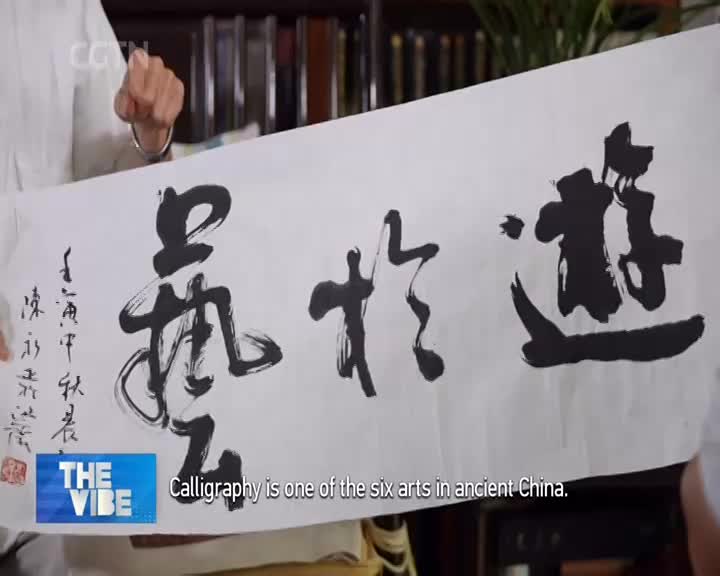 CGTN
遊於藝
壬寅中秋晨
陳永
THE
VIBE
Calligraphy is one of the six arts in ancient China.